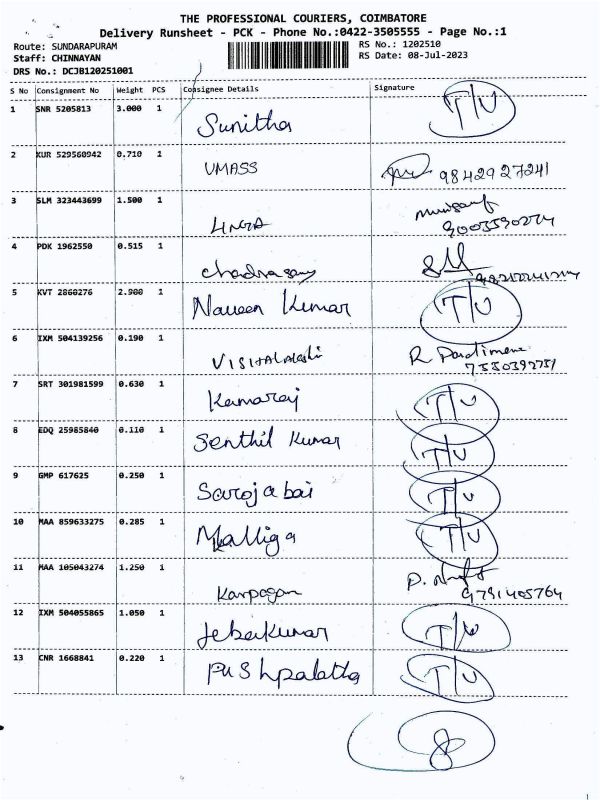 THE PROFESSIONAL COURIERS, COIMBATORE
Delivery Runsheet - PCK - Phone No.:0422-3505555 - Page No.:1
Route: SUNDARAPURAM RS No.: 1202510
Staff: CHINNAYAN RS Date: 08-Jul-2023
DRS No.: DCJB120251001
S No Consignment No Weight PCS Consignee Details Signature
1 SNR 5205813 3.000 1 Sunitha T/U
2 KUR 529560942 0.710 1 UMASS 9842927241
3 SLM 323443699 1.500 1 LINGA
4 PDK 1962550 0.515 1
5 KVT 2860276 2.900 1 Naveen Kumar T/U
6 IXM 504139256 0.190 1 R
7 SRT 301981599 0.630 1 Kamaraj T/U
8 EDQ 25985840 0.110 1 Senthil Kumar T/U
9 GMP 617625 0.250 1 Sarojabai T/U
10 MAA 859633275 0.285 1 Malliga T/U
11 MAA 105043274 1.250 1 Karpagam P. 9791405764
12 IXM 504055865 1.050 1 Jebakumar T/U
13 CNR 1668841 0.220 1 Pushpalatha T/U
8
1